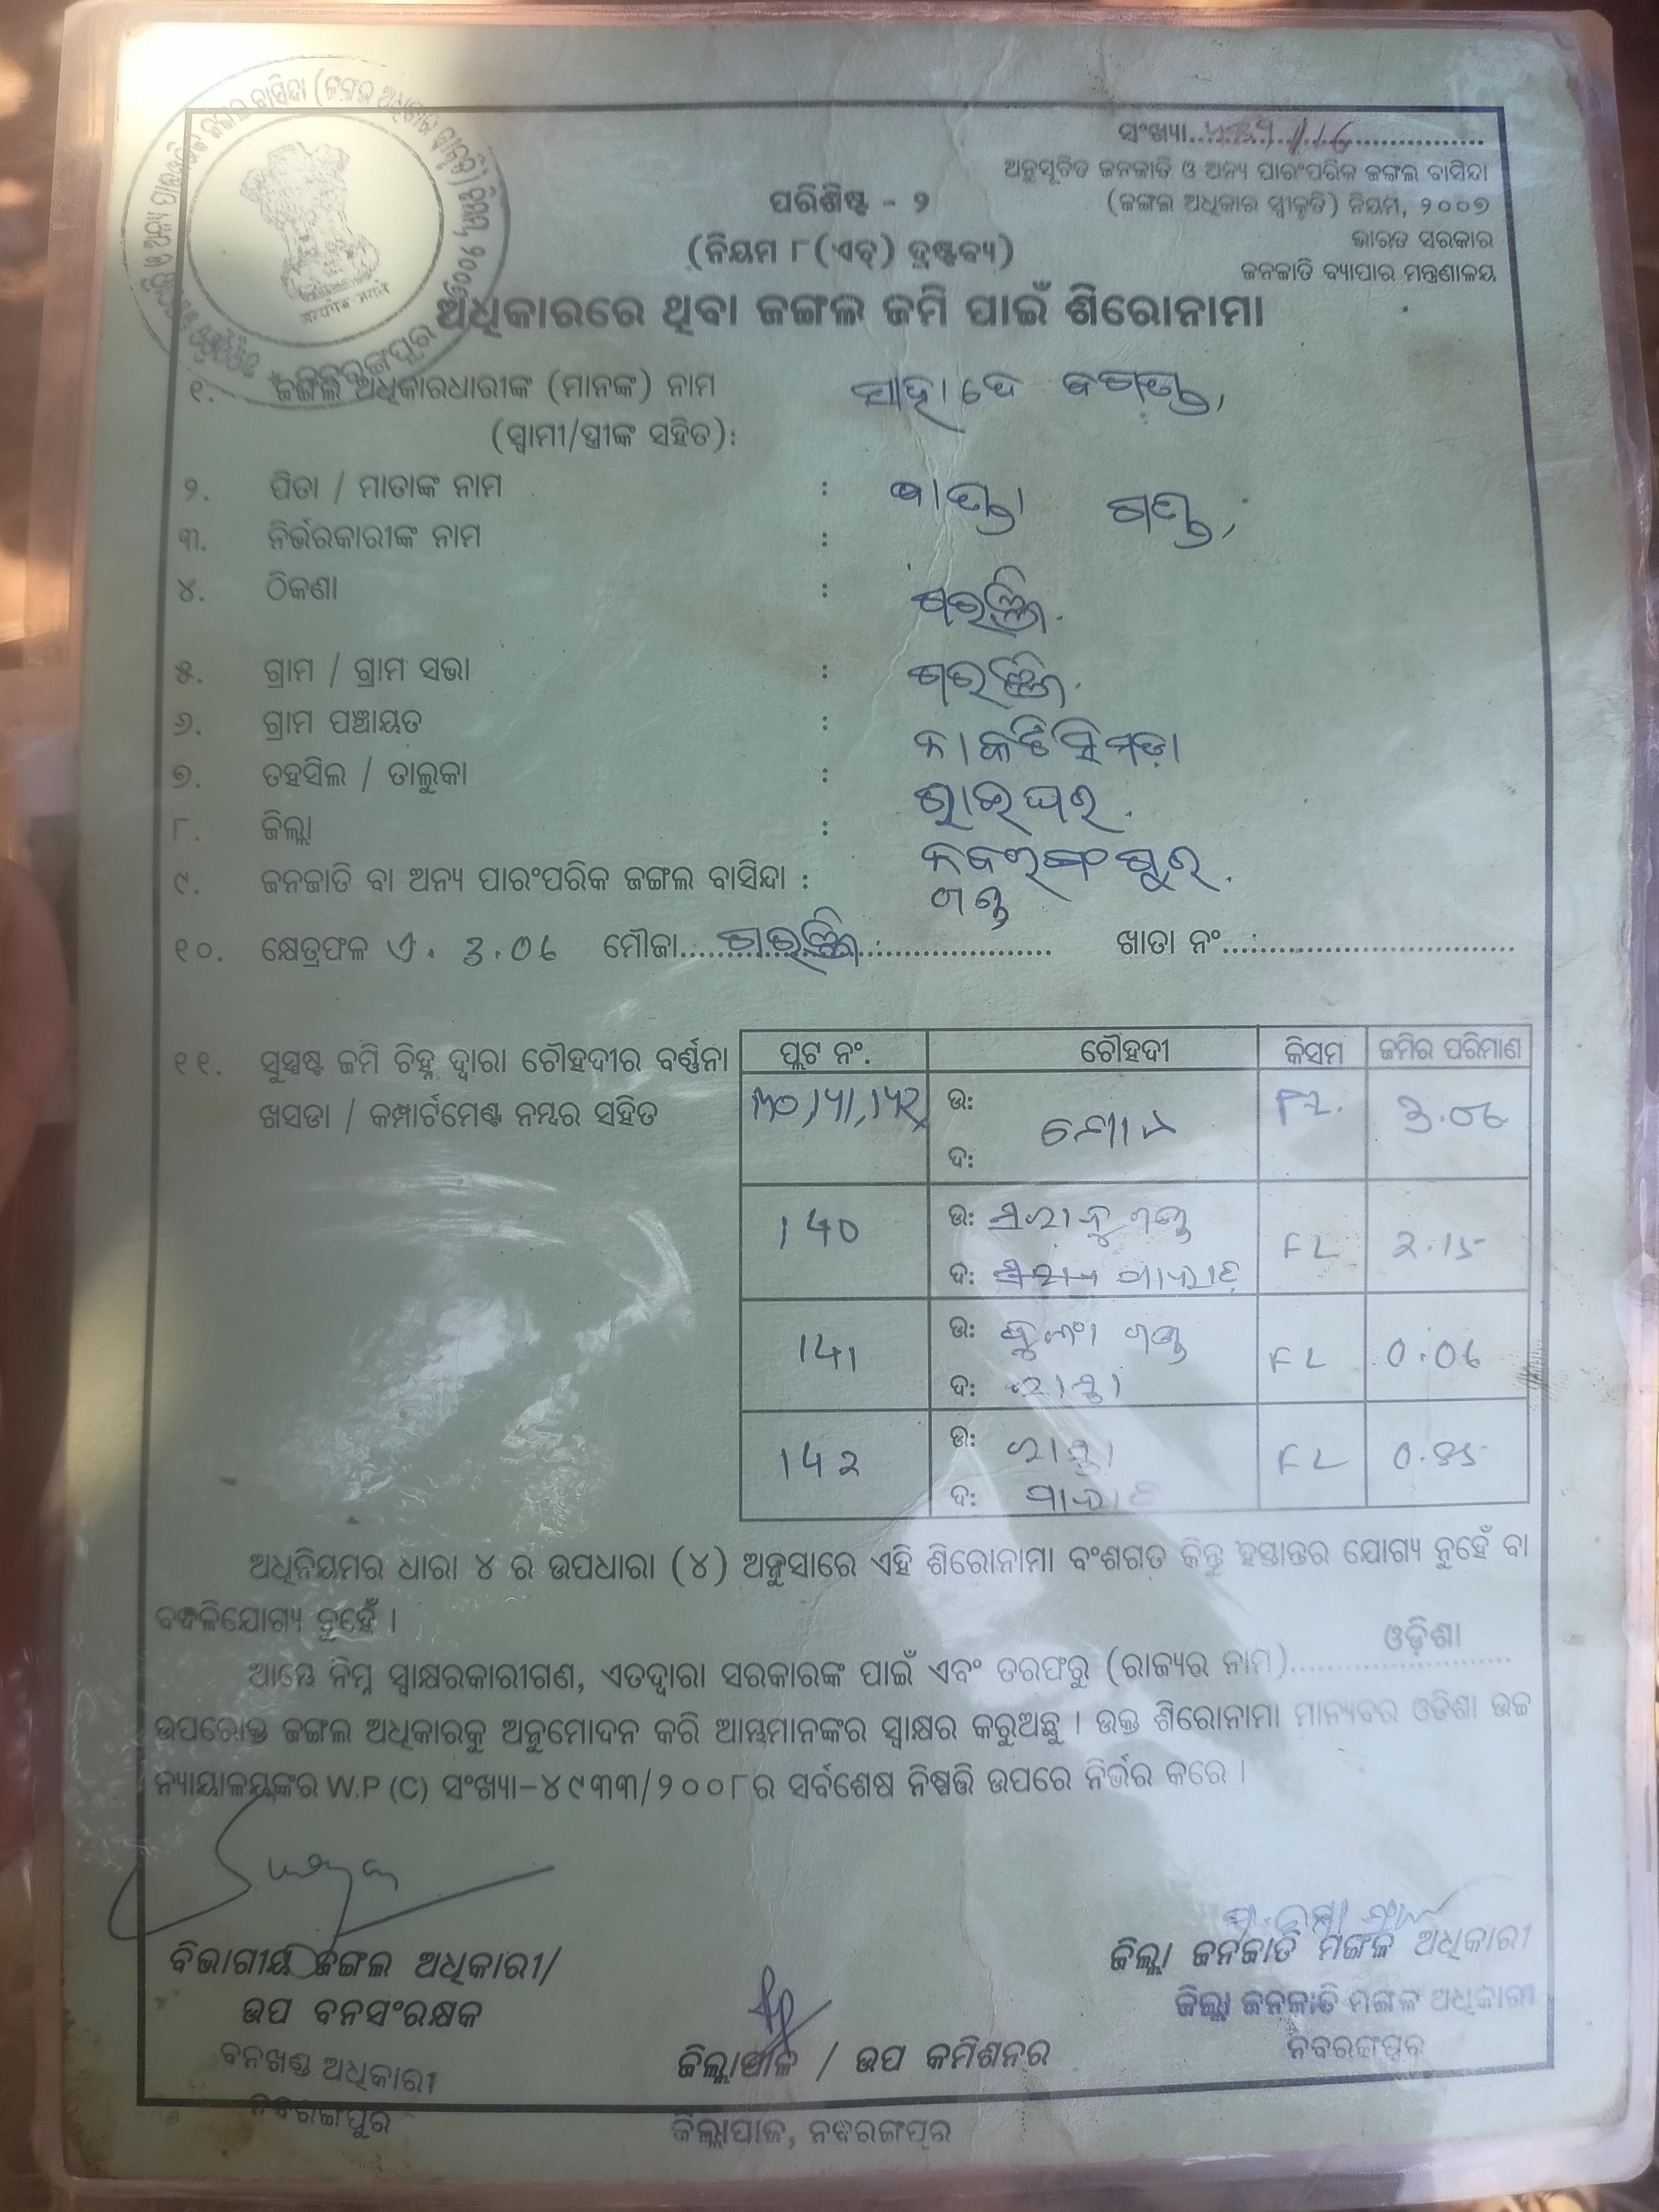 ସଂଖ୍ୟା
ଅନୁସୂଚିତ ଜନଜାତି ଓ ଅନ୍ୟ ପାରଂପରିକ ଜଙ୍ଗଲ ବାସିନ୍ଦା
(ଜଙ୍ଗଲ ଅଧିକାର ସ୍ୱୀକୃତି) ନିୟମ, ୨୦୦୭
ଭାରତ ସରକାର
ଜନଜାତି ବ୍ୟାପାର ମନ୍ତ୍ରଣାଳୟ
ପରିଶିଷ୍ଟ - ୨
(ନିୟମ ୮(ଏଚ୍) ଦ୍ରଷ୍ଟବ୍ୟ)
ଅଧିକାରରେ ଥିବା ଜଙ୍ଗଲ ଜମି ପାଇଁ ଶିରୋନାମା
୧. ଜଙ୍ଗଲ ଅଧିକାରଧାରୀଙ୍କ (ମାନଙ୍କ) ନାମ
(ସ୍ୱାମୀ/ସ୍ତ୍ରୀଙ୍କ ସହିତ):
୨. ପିତା / ମାତାଙ୍କ ନାମ :
୩. ନିର୍ଭରକାରୀଙ୍କ ନାମ :
୪. ଠିକଣା :
୫. ଗ୍ରାମ / ଗ୍ରାମ ସଭା :
୬. ଗ୍ରାମ ପଞ୍ଚାୟତ : ନାକଟିସିମଡ଼ା
୭. ତହସିଲ / ତାଲୁକା : ରାଇଘର.
୮. ଜିଲ୍ଲା : ନବରଙ୍ଗପୁର.
୯. ଜନଜାତି ବା ଅନ୍ୟ ପାରଂପରିକ ଜଙ୍ଗଲ ବାସିନ୍ଦା : ଗଣ୍ଡ
୧୦. କ୍ଷେତ୍ରଫଳ ଏ. 3.06 ମୌଜା ଖାତା ନଂ
୧୧. ସୁସ୍ପଷ୍ଟ ଜମି ଚିହ୍ନ ଦ୍ୱାରା ଚୌହଦୀର ବର୍ଣ୍ଣନା
ଖସଡା / କମ୍ପାର୍ଟମେଣ୍ଟ ନମ୍ବର ସହିତ
ପ୍ଲଟ ନଂ. ଚୌହଦୀ କିସମ ଜମିର ପରିମାଣ
ଉ: 3.06
ଦ:
140 ଉ: FL 2.15
ଦ:
141 ଉ: FL 0.06
ଦ: ରାସ୍ତା
142 ଉ: ରାସ୍ତା FL 0.85
ଦ:
ଅଧିନିୟମର ଧାରା ୪ ର ଉପଧାରା (୪) ଅନୁସାରେ ଏହି ଶିରୋନାମା ବଂଶଗତ କିନ୍ତୁ ହସ୍ତାନ୍ତର ଯୋଗ୍ୟ ନୁହେଁ ବା
ବଦଳିଯୋଗ୍ୟ ନୁହେଁ ।
ଆମ୍ଭେ ନିମ୍ନ ସ୍ୱାକ୍ଷରକାରୀଗଣ, ଏତଦ୍ୱାରା ସରକାରଙ୍କ ପାଇଁ ଏବଂ ତରଫରୁ (ରାଜ୍ୟର ନାମ) ଓଡ଼ିଶା
ଉପରୋକ୍ତ ଜଙ୍ଗଲ ଅଧିକାରକୁ ଅନୁମୋଦନ କରି ଆମ୍ଭମାନଙ୍କର ସ୍ୱାକ୍ଷର କରୁଅଛୁ । ଉକ୍ତ ଶିରୋନାମା ମାନ୍ୟବର ଓଡିଶା ଉଚ୍ଚ
ନ୍ୟାୟାଳୟଙ୍କର W.P (C) ସଂଖ୍ୟା-୪୯୩୩/୨୦୦୮ର ସର୍ବଶେଷ ନିଷ୍ପତ୍ତି ଉପରେ ନିର୍ଭର କରେ ।
ବିଭାଗୀୟ ଜଙ୍ଗଲ ଅଧିକାରୀ/
ଉପ ବନସଂରକ୍ଷକ
ବନଖଣ୍ଡ ଅଧିକାରୀ
ନବରଙ୍ଗପୁର
ଜିଲ୍ଲାପାଳ / ଉପ କମିଶନର
ଜିଲ୍ଲାପାଳ, ନବରଙ୍ଗପୁର
ଜିଲ୍ଲା ଜନଜାତି ମଙ୍ଗଳ ଅଧିକାରୀ
ଜିଲ୍ଲା ଜନଜାତି ମଙ୍ଗଳ ଅଧିକାରୀ
ନବରଙ୍ଗପୁର